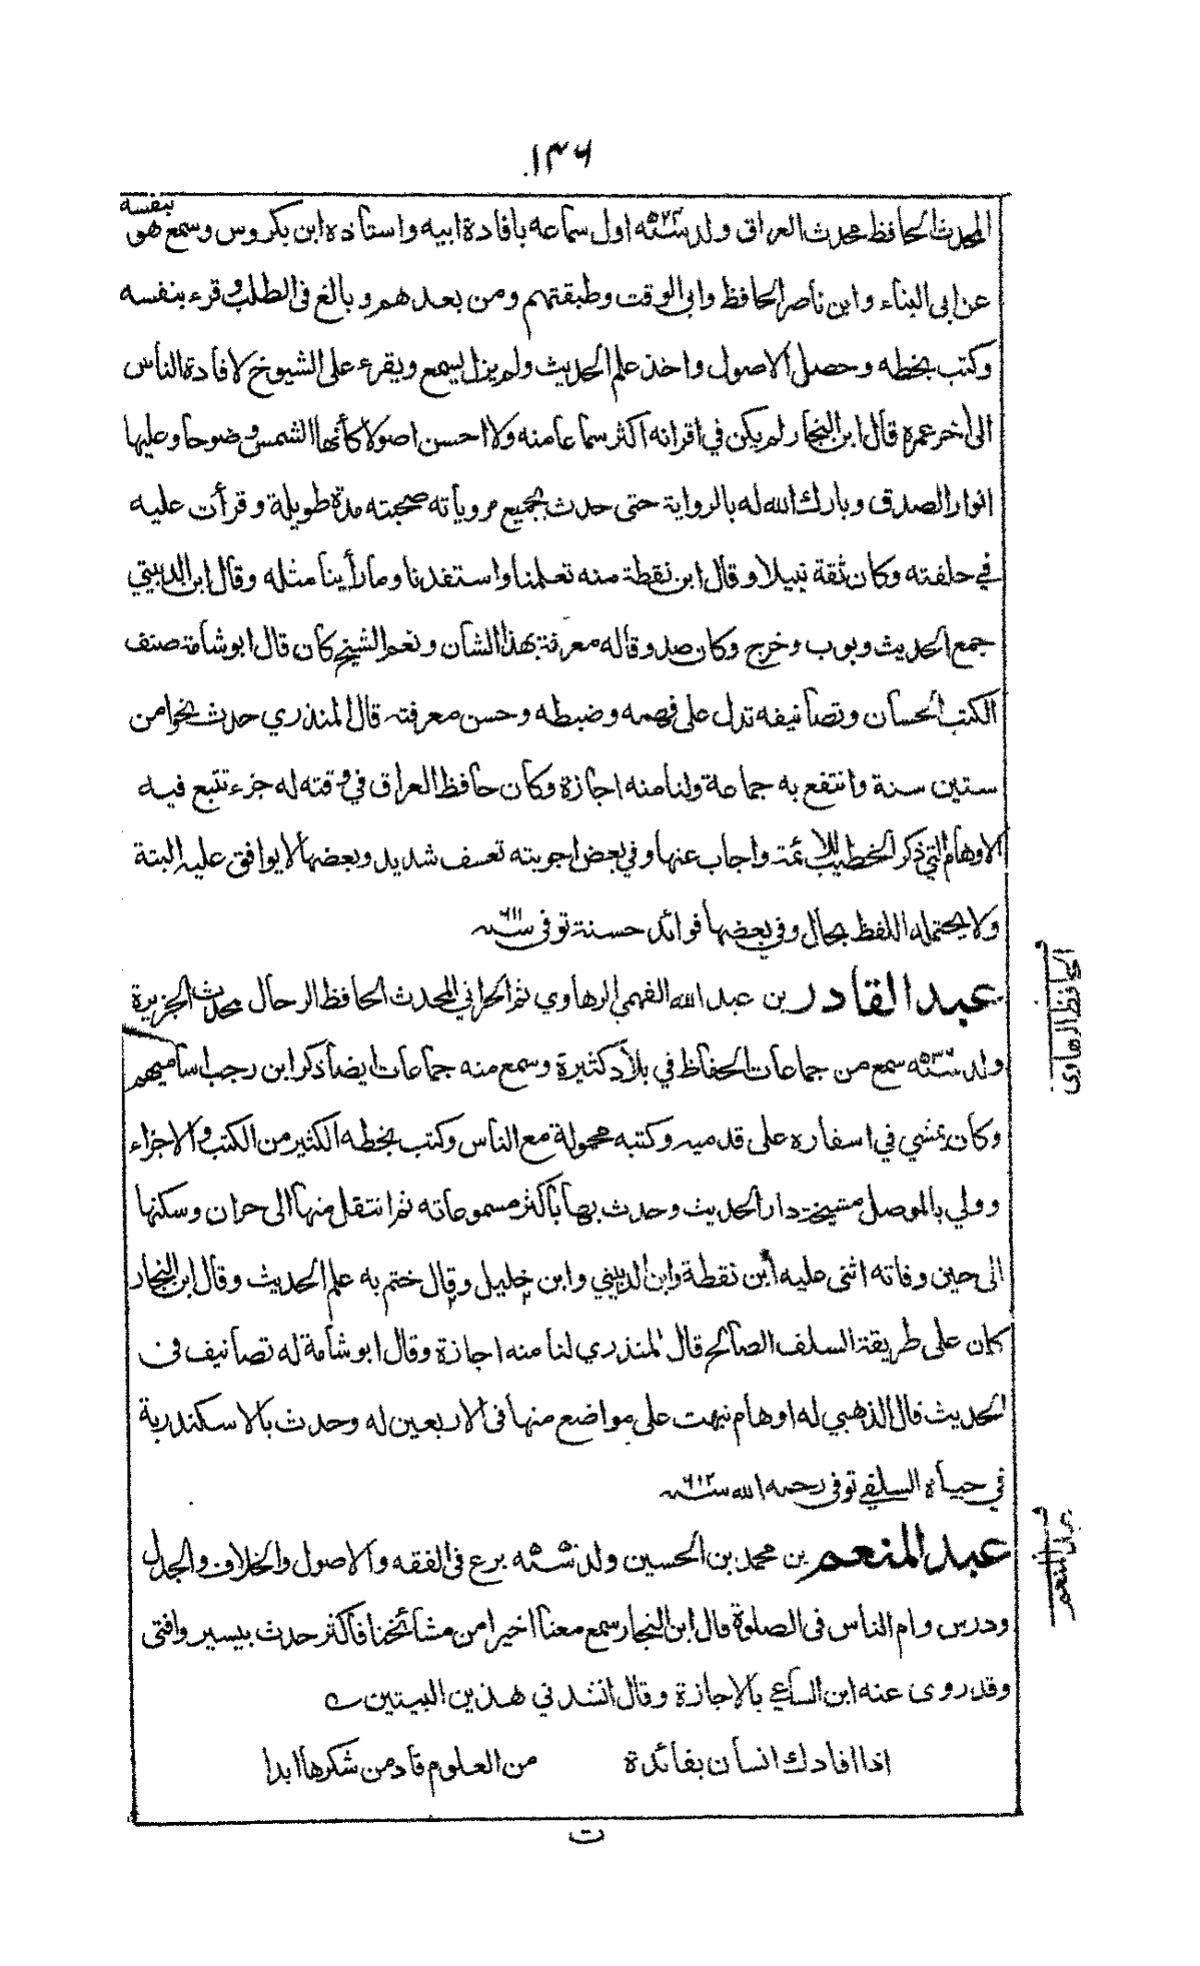 ١٣٦
المحدث الحافظ محدث العراق ولد سنة ٥٢٤ اول سماعه بافادة ابيه واستاذه ابن بكروس وسمع هو بنفسه
عن ابى البناء وابن ناصر الحافظ وابى الوقت وطبقتهم ومن بعدهم وبالغ فى الطلب وقرء بنفسه
وكتب بخطه وحصل الاصول واخذ علم الحديث ولم يزل يسمع ويقرء على الشيوخ لافادة الناس
الى اخر عمره قال ابن النجار لم يكن في اقرانه اكثر سماعا منه ولا احسن اصولا كأنها الشمس وضوحا وعليها
انوار الصدق وبارك الله له بالرواية حتى حدث بجميع مروياته صحبته مدة طويلة وقرأت عليه
في حلفته وكان ثقة نبيلا وقال ابن نقطة منه تعلمنا واستفدنا وما رأينا مثله وقال ابن الدبيثي
جمع الحديث وبوب وخرج وكان صدوقا له معرفة بهذا الشان ونعم الشيخ كان قال ابو شامة صنف
الكتب الحسان وتصانيفه تدل على فهمه وضبطه وحسن معرفته قال المنذري حدث نحوا من
ستين سنة وانتفع به جماعة ولنا منه اجازة وكان حافظ العراق في وقته له جزء تتبع فيه
الاوهام التي ذكر الخطيب للائمة واجاب عنها وفي بعض اجوبته تعسف شديد وبعضها لا يوافق عليه البتة
ولا يحتمله اللفظ بحال وفي بعضها فوائد حسنة توفى سنه ٦١١
عبد القادر بن عبد الله الفهمي الرهاوي ثم الحراني المحدث الحافظ الرحال محدث الجزيرة
ولد سنه ٥٣٦ سمع من جماعات الحفاظ في بلاد كثيرة وسمع منه جماعات ايضا ذكر ابن رجب اساميهم
وكان يمشي في اسفاره على قدميه وكتبه محمولة مع الناس وكتب بخطه الكثير من الكتب والاجزاء
وولي بالموصل مشيخة دار الحديث وحدث بها بأكثر مسموعاته ثم انتقل منها الى حران وسكنها
الى حين وفاته اثنى عليه ابن نقطة وابن الدبيثي وابن خليل وقال ختم به علم الحديث وقال ابن النجار
كان على طريقة السلف الصالح قال المنذري لنا منه اجازة وقال ابو شامة له تصانيف فى
الحديث قال الذهبي له اوهام نبهت على مواضع منها فى الاربعين له وحدث بالاسكندرية
في حياة السلفي توفى رحمه الله سنه ٦١٢
عبد المنعم بن محمد بن الحسين ولد سنه برع فى الفقه والاصول والخلاف والجدل
ودرس وام الناس فى الصلوة قال ابن النجار سمع معنا اخيرا من مشائخنا فاكثر حدث بيسير وافتى
وقد روى عنه ابن الساعي بالاجازة وقال انشدني هذين البيتين
اذا افادك انسان بفائدة من العلوم فادمن شكرها ابدا
ت
الحافظ الرهاوى
عبد المنعم